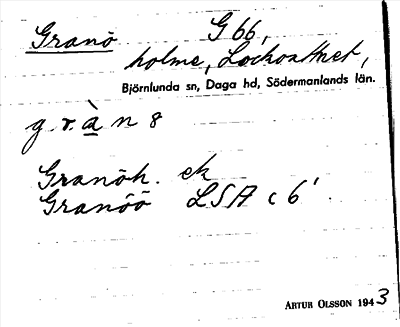 Granö G 66,
holme, Lockvattnet,
Björnlunda sn, Daga hd, Södermanlands län.
g.r.à n 8
Granöh. ek
Granöö LSA c 6'
ARTUR OLSSON 1943